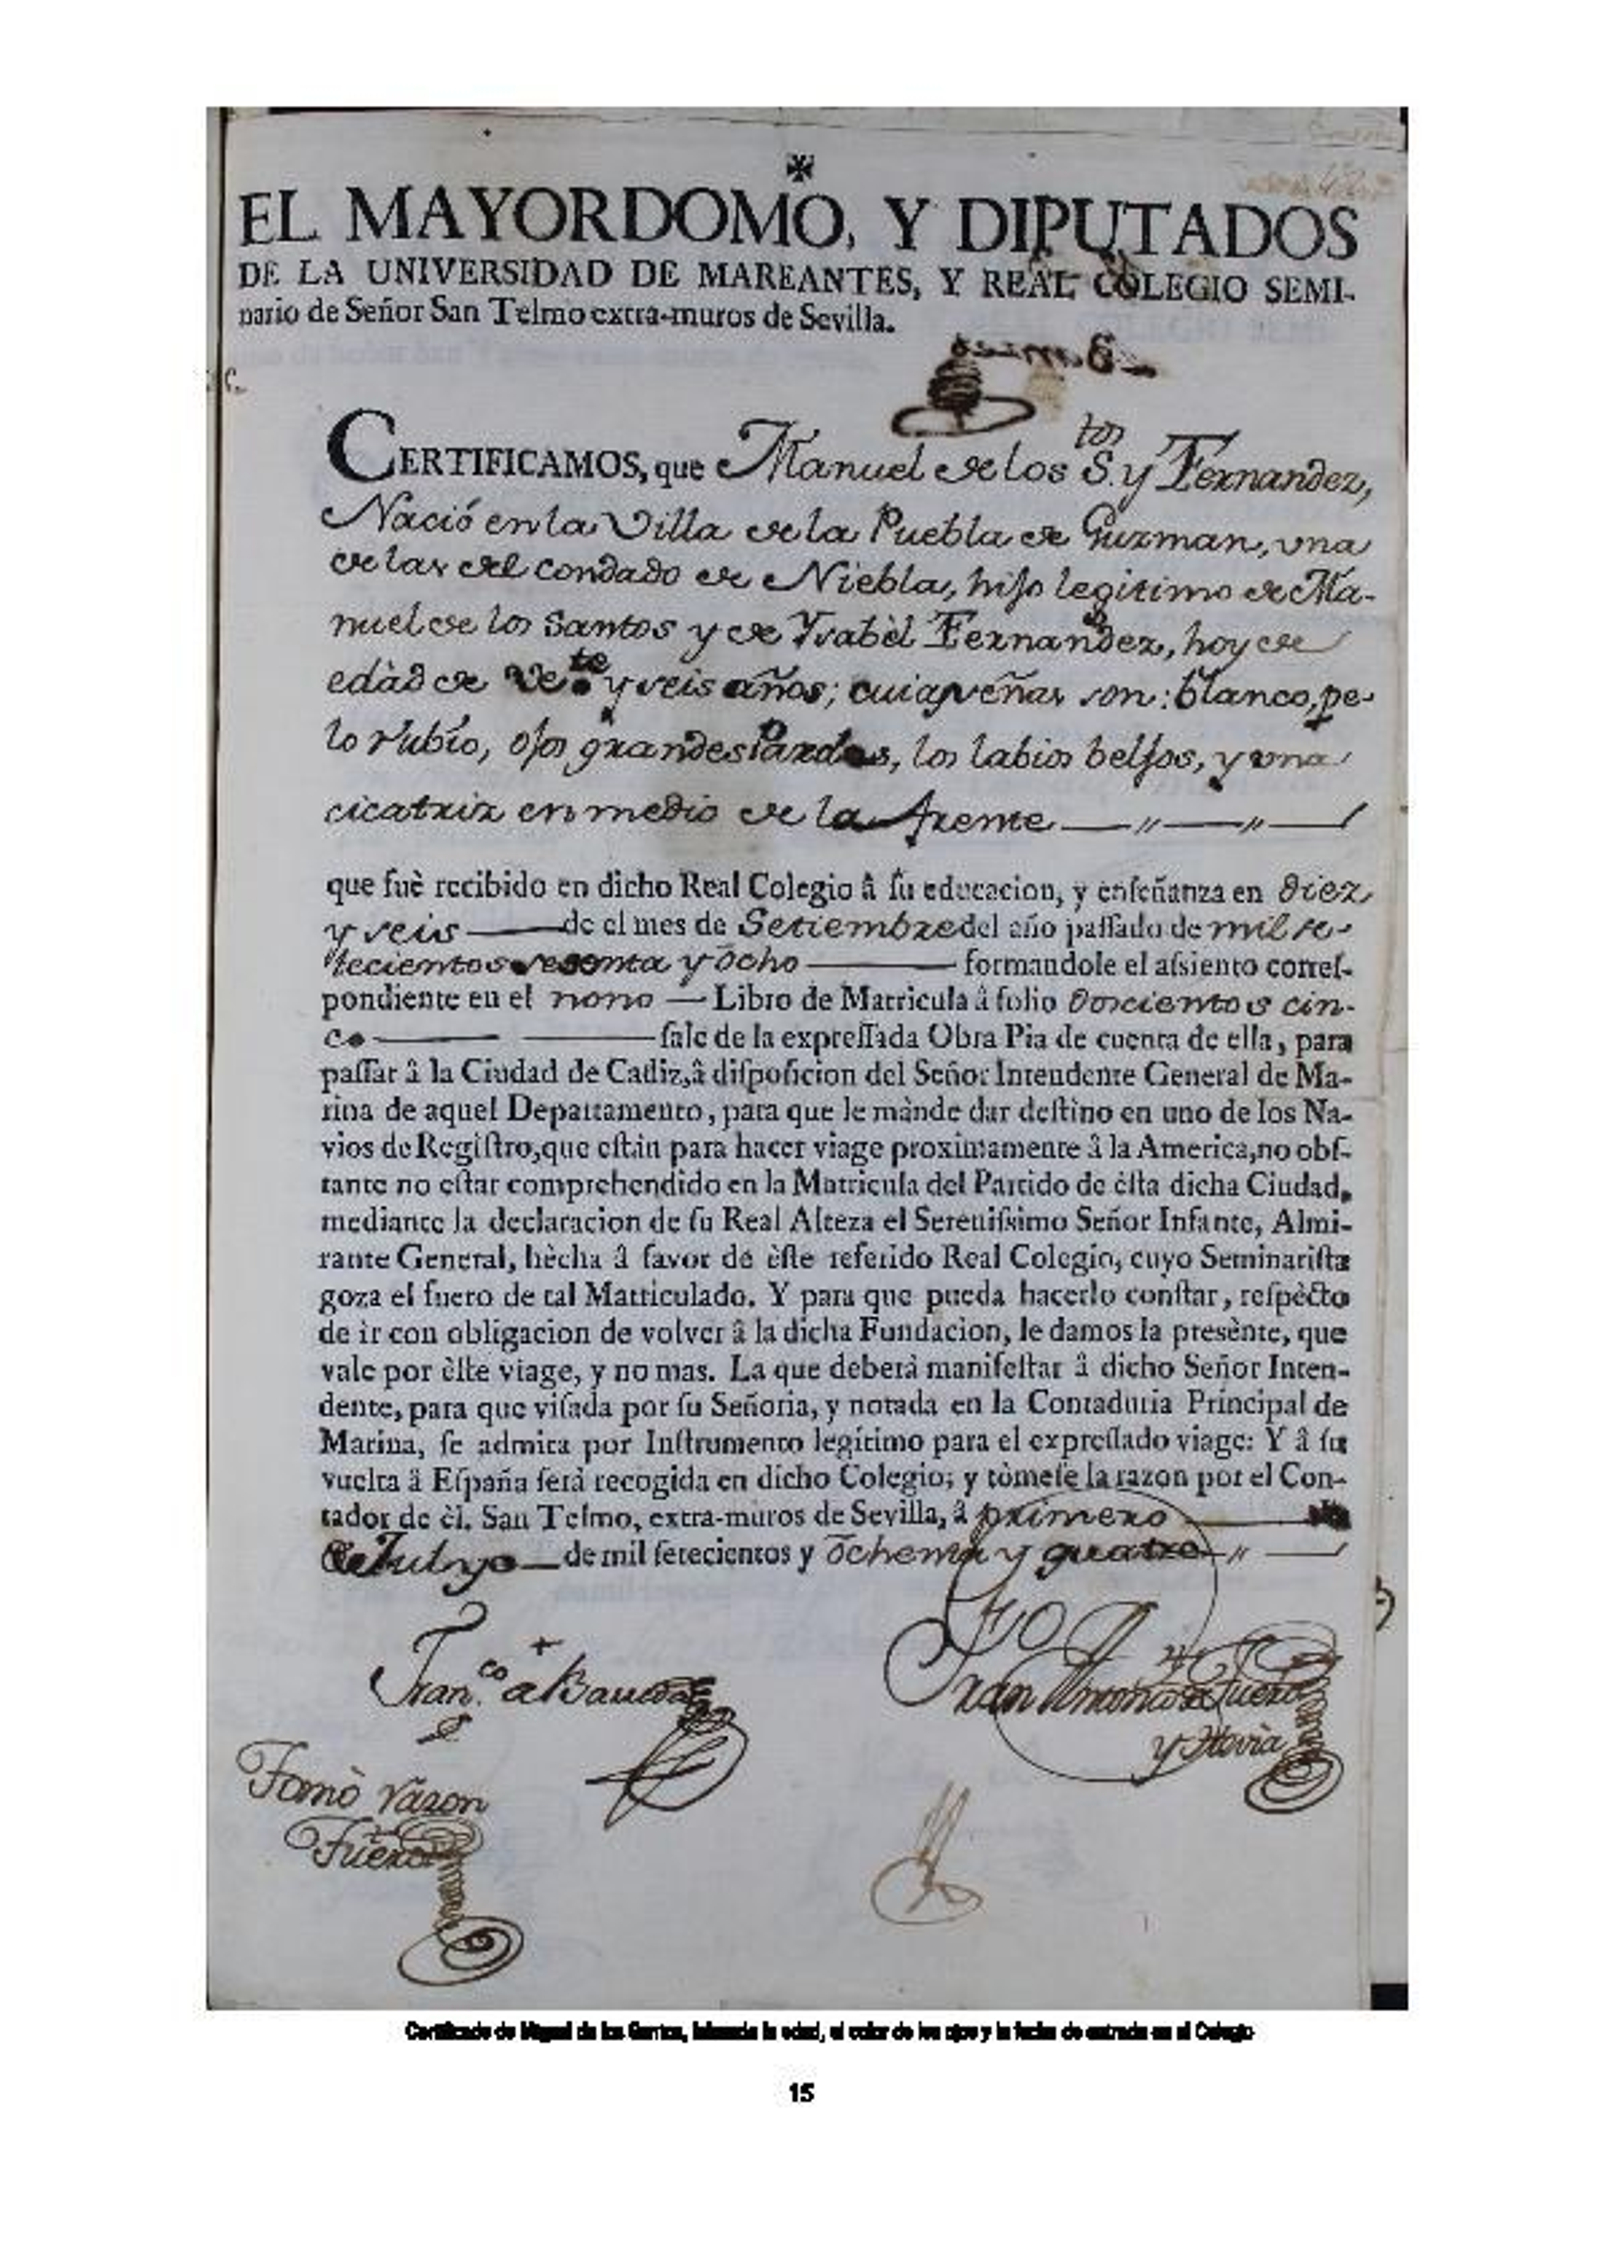 EL MAYORDOMO, Y DIPUTADOS
DE LA UNIVERSIDAD DE MAREANTES, Y REAL COLEGIO SEMI-
nario de Señor San Telmo extra-muros de Sevilla.
CERTIFICAMOS, que Manuel de los S.tos y Fernandez,
Nació en la Villa de la Puebla de Guzman, vna
de las del condado de Niebla, hijo legitimo de Ma-
nuel de los Santos y de Ysabèl Fernandez, hoy de
edàd de Ve.te y seis años; cuias señas son: blanco, pe-
lo rubio, ojos grandes Pardos, los labios belfos, y vna
cicatriz en medio de la frente
que fuè recibido en dicho Real Colegio â ſu educacion, y enſeñanza en diez
y seis de el mes de Setiembre del año paſſado de mil se-
tecientos sesenta y ôcho formandole el aſsiento correſ-
pondiente en el nono Libro de Matricula â folio doscientos cin-
co ſale de la expreſſada Obra Pia de cuenta de ella, para
paſſar â la Ciudad de Cadiz, â diſpoſicion del Señor Intendente General de Ma-
rina de aquel Departamento, para que le mànde dar deſtino en uno de los Na-
vios de Regiſtro, que eſtàn para hacer viage proximamente â la America, no obſ-
tante no eſtar comprehendido en la Matricula del Partido de èſta dicha Ciudad,
mediante la declaracion de ſu Real Alteza el Sereniſsimo Señor Infante, Almi-
rante General, hècha â favor de èſte referido Real Colegio, cuyo Seminariſta
goza el fuero de tal Matriculado. Y para que pueda hacerlo conſtar, reſpècto
de ir con obligacion de volver â la dicha Fundacion, le damos la presènte, que
vale por èſte viage, y no mas. La que deberà manifeſtar â dicho Señor Inten-
dente, para que viſada por ſu Señoria, y notada en la Contaduria Principal de
Marina, ſe admita por Inſtrumento legítimo para el expreſſado viage: Y â ſu
vuelta â Eſpaña ſerà recogida en dicho Colegio; y tòmeſe la razon por el Con-
tador de èl. San Telmo, extra-muros de Sevilla, â primero
de Julyo de mil ſetecientos y ôchenta y quatro
Fran.co
Juan Antonio de Fuero
Tomò razon
Fuero
Certificado de Miguel de los Santos, faltando la edad, el color de los ojos y la fecha de entrada en el Colegio
15